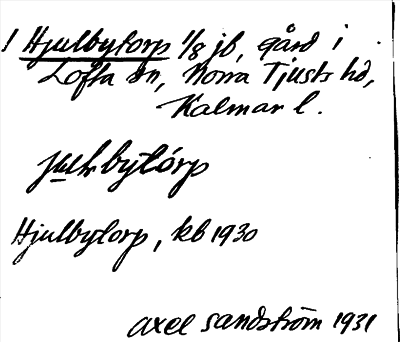 1 Hjulbytorp 1/8 jb, gård i
Lofta sn, Norra Tjusts hd,
Kalmar l.
Hjulbytorp, kb 1930
Axel Sandström 1931